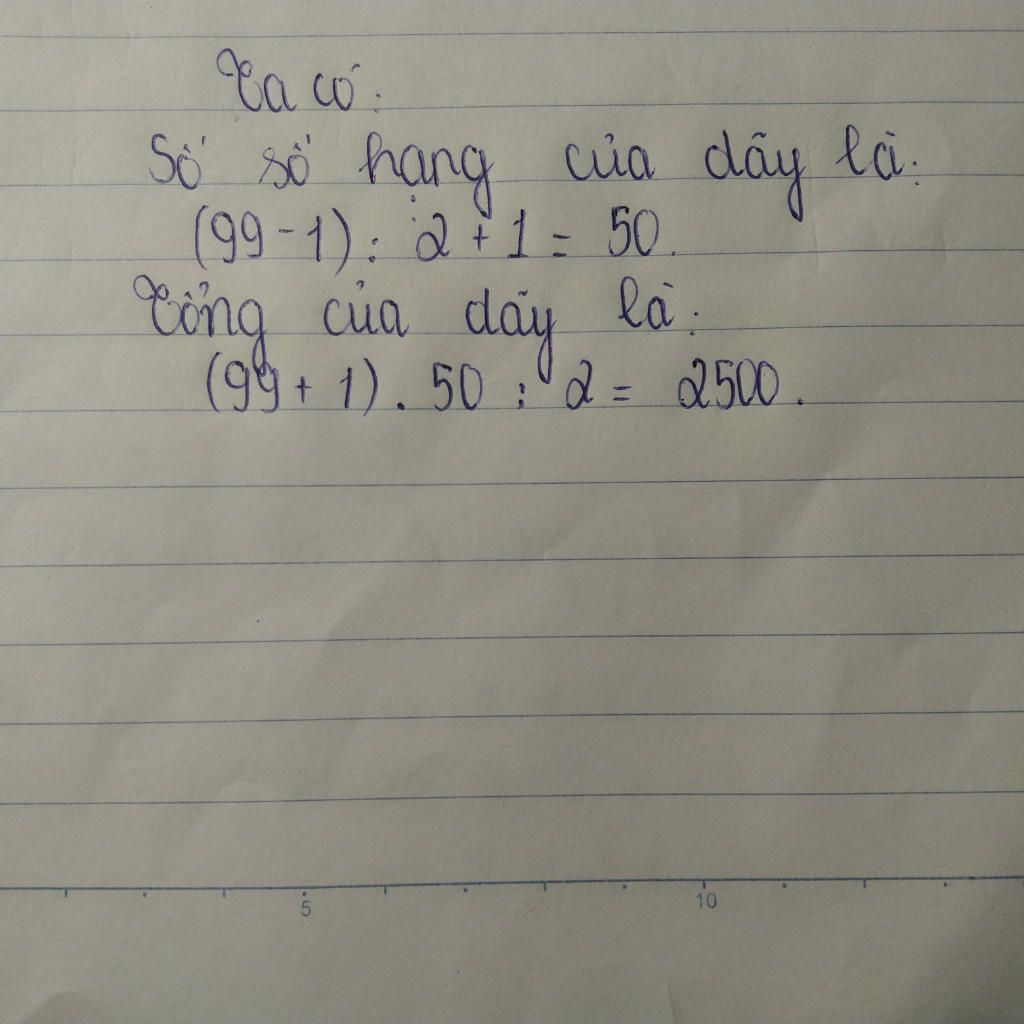 Ta có:
Số số hạng của dãy là:
(99 - 1) : 2 + 1 = 50.
Tổng của dãy là:
(99 + 1) . 50 : 2 = 2500.
5 10